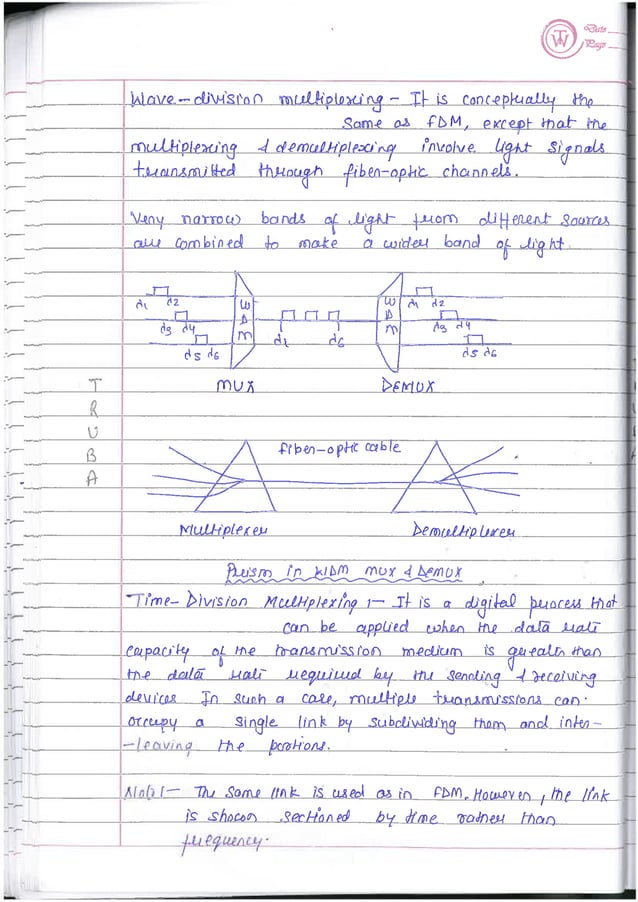 TW Date
Page
Wave-division multiplexing - It is conceptually the
same as FDM, except that the
multiplexing & demultiplexing involve light signals
transmitted through fiber-optic channels.
Very narrow bands of light from different sources
are combined to make a wider band of light.
d1 d2
d3 d4
d5 d6
WDM
d1 d6
WDM
d1 d2
d3 d4
d5 d6
MUX DEMUX
TRUBA
fiber-optic cable
Multiplexer Demultiplexer
Prism in WDM MUX & DEMUX
Time-Division Multiplexing :- It is a digital process that
can be applied when the data rate
capacity of the transmission medium is greater than
the data rate required by the sending & receiving
devices. In such a case, multiple transmissions can
occupy a single link by subdividing them and inter-
-leaving the portions.
Note:- The same link is used as in FDM. However, the link
is shown sectioned by time rather than
frequency.